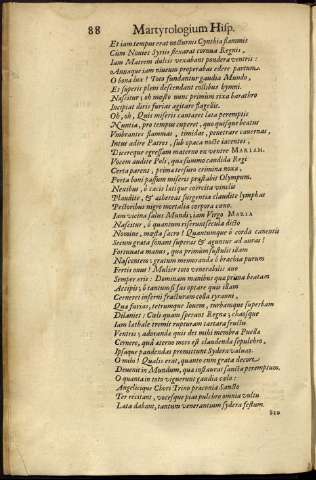 88 Martyrologium Hisp.
Et iam tempus erat nocturnis Cynthia flammis
Cùm Nonies Syriis flexarat cornua Regnis,
Iam Matrem dulcis vexabant pondera ventris:
Annaque iam niueum properabas edere partum.
O bona lux! Tota fundantur gaudia Mundo,
Et superi plenis descendant collibus hymni.
Nascitur; oh mœsto nunc primùm rixa barathro
Incipiat diris furias agitare flagellis.
Oh, oh, Quis miseris cantaret læta peremptis
Nuntia, pro tempus superet, quo quisque beatus
Vmbrantes flammas, timidas, penetrare cauernas,
Intus adire Patres, sub opaca nocte iacentes,
Dicereque egressam materno ex ventre MARIAM.
Vocem audite Poli, qua summo candida Regi
Certa parens, prima tersura crimina noxa,
Porta boni passum miseris præstabit Olympum.
Nexibus, ô cæcis latique coërcita vinclis
Plaudite, & æthereas surgentia claudite lymphas
Pectoribus nigro mortalia corpora cœno.
Iam vicina salus Mundi; iam Virgo MARIA
Nascitur, ô quantùm riserunt secula dicto
Nomine, mœsta sacro! Quantumque ô corda canentis
Secum grata sonant superas & aguntur ad auras!
Fortunata manus, qua primùm sustulit illam
Nascentem; gratum me miserande ô brachia purum
Fertis onus! Mulier tuto venerabilis auo
Semper eris: Dominam manibus qua prima beatam
Accipis; ô tantùm si fas optare quis illam
Cerneret inferni fracturam colla tyranni,
Qua furias, tetrumque Iouem, turbanque superbam
Dilamet: Cœlis quam sperant Regna; chaosque
Iam lathale tremit rupturam tartara fructu
Ventris; & adoranda quis det mihi membra Puella
Cernere, quâ aterno mors est claudenda sepulchro,
Ipsaque pandendas præmittunt Sydera valuas.
O mihi! Qualis erat, quanto cum grata decore
Deuenit in Mundum, qua instauras sancta peremptum.
O quanta in toto viguerunt gaudia cœlo:
Angelicique Chori Trino præconia Sancto
Ter recitant, vocesque piæ pulchro omnia vultu
Læta dabant, tantum venerantium sydera festum.